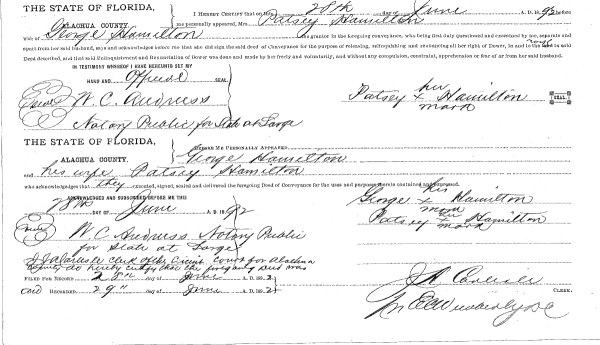 THE STATE OF FLORIDA,
ALACHUA COUNTY.
I HEREBY CERTIFY that on 28th day of June A. D. 1892 before
me personally appeared, Mrs. Patsey Hamilton
wife of George Hamilton as grantor in the foregoing conveyance, who being first duly questioned and examined by me, separate and
apart from her said husband, says and acknowledges before me that she did sign the said deed of Conveyance for the purpose of releasing, relinquishing and renouncing all her right of Dower, in and to the land in said
Deed described, and that said Relinquishment and Renunciation of Dower was done and made by her freely and voluntarily, and without any compulsion, constraint, apprehension or fear of or from her said husband.
IN TESTIMONY WHEREOF I HAVE HEREUNTO SET MY
HAND AND Official SEAL
W. C. Andruss
Notary Public for State at Large
her
Patsey x Hamilton SEAL
mark
THE STATE OF FLORIDA,
ALACHUA COUNTY.
BEFORE ME PERSONALLY APPEARED, George Hamilton
and his wife Patsey Hamilton
who acknowledges that they executed, signed, sealed and delivered the foregoing Deed of Conveyance for the uses and purposes therein contained and expressed.
ACKNOWLEDGED AND SUBSCRIBED BEFORE ME THIS
28th DAY OF June A. D. 1892
W. C. Andruss Notary Public
for State at Large
his
George x Hamilton
mark
her
Patsey x Hamilton
mark
clerk of the Circuit Court for Alachua
County do hereby certify that the foregoing Deed was
FILED FOR RECORD 28" day of June A. D. 1892
and RECORDED 29" day of June A. D. 1892
CLERK.